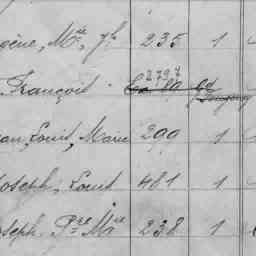 gène, Mie, Jh 235 1
François 2797
an, Louis, Marie 290 1
Joseph, Louis 481 1
oseph Pre Mie 238 1